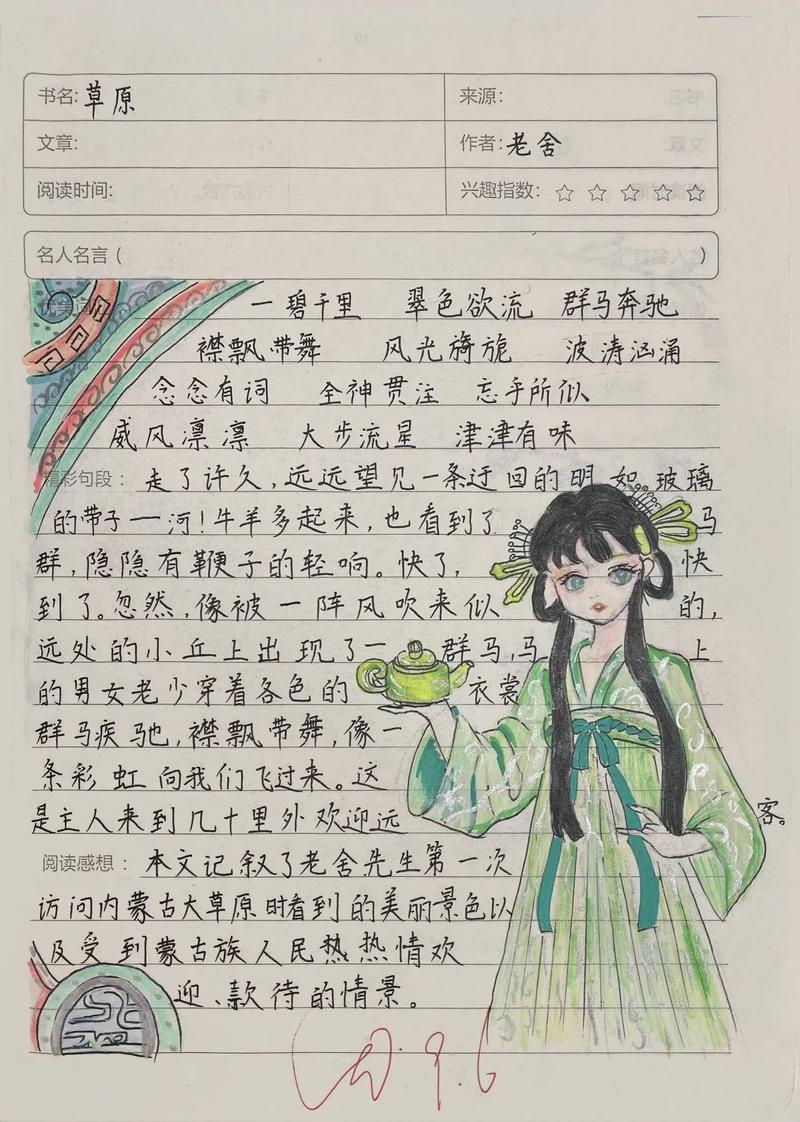 书名: 草原 来源:
文章: 作者: 老舍
阅读时间: 兴趣指数: ☆ ☆ ☆ ☆ ☆
名人名言 ( )
一碧千里 翠色欲流 群马奔驰
襟飘带舞 风光旖旎 波涛汹涌
念念有词 全神贯注 忘乎所似
威风凛凛 大步流星 津津有味
精彩句段: 走了许久,远远望见一条迂回的明如玻璃
的带子一河!牛羊多起来,也看到了马
群,隐隐有鞭子的轻响。快了,快
到了。忽然,像被一阵风吹来似的,
远处的小丘上出现了一群马,马上
的男女老少穿着各色的衣裳
群马疾驰,襟飘带舞,像一
条彩虹向我们飞过来。这
是主人来到几十里外欢迎远客。
阅读感想: 本文记叙了老舍先生第一次
访问内蒙古大草原时看到的美丽景色以
及受到蒙古族人民热热情欢
迎、款待的情景。
9.6